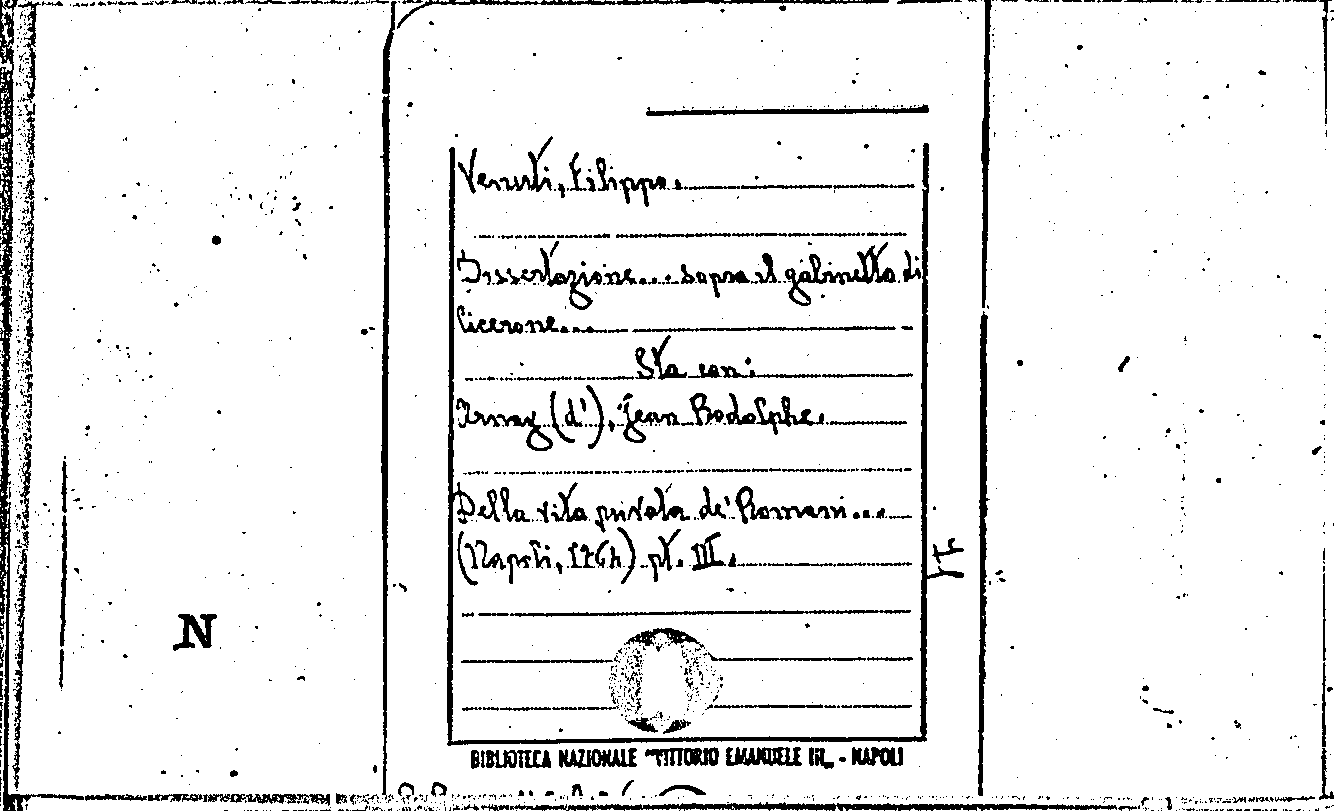 Venuti, Filippo.
Dissertazione... sopra il gabinetto di
Cicerone...
Sta con:
Arnay (d'), Jean Rodolphe.
Della vita privata de' Romani...
(Napoli, 1764) pt. III.
N
BIBLIOTECA NAZIONALE "VITTORIO EMANUELE III„ - NAPOLI